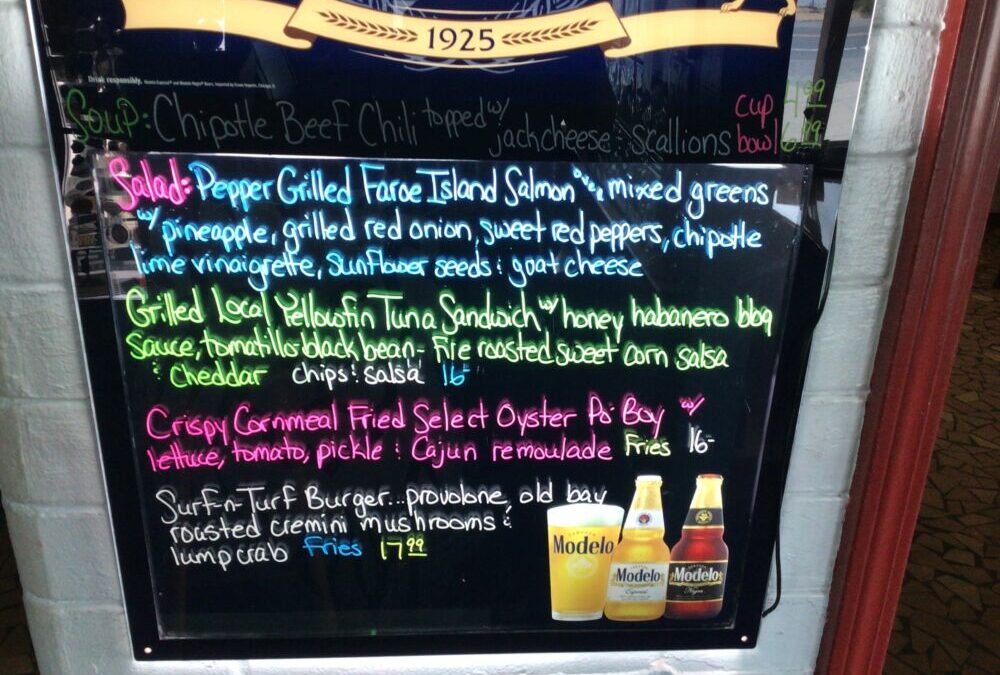 1925
Drink responsibly.
Soup: Chipotle Beef Chili topped w/ jackcheese & scallions cup 4.99
bowl 6.99
Salad: Pepper Grilled Faroe Island Salmon over mixed greens
w/ pineapple, grilled red onion, sweet red peppers, chipotle
lime vinaigrette, sunflower seeds & goat cheese
Grilled Local Yellowfin Tuna Sandwich w/ honey habanero bbq
sauce, tomatillo-black bean-fire roasted sweet corn salsa
& Cheddar chips & salsa 16-
Crispy Cornmeal Fried Select Oyster Po' Boy w/
lettuce, tomato, pickle & Cajun remoulade Fries 16-
Surf-n-Turf Burger...provolone, old bay
roasted cremini mushrooms &
lump crab Fries 17.99
Modelo
Modelo
Especial
Modelo
Negra